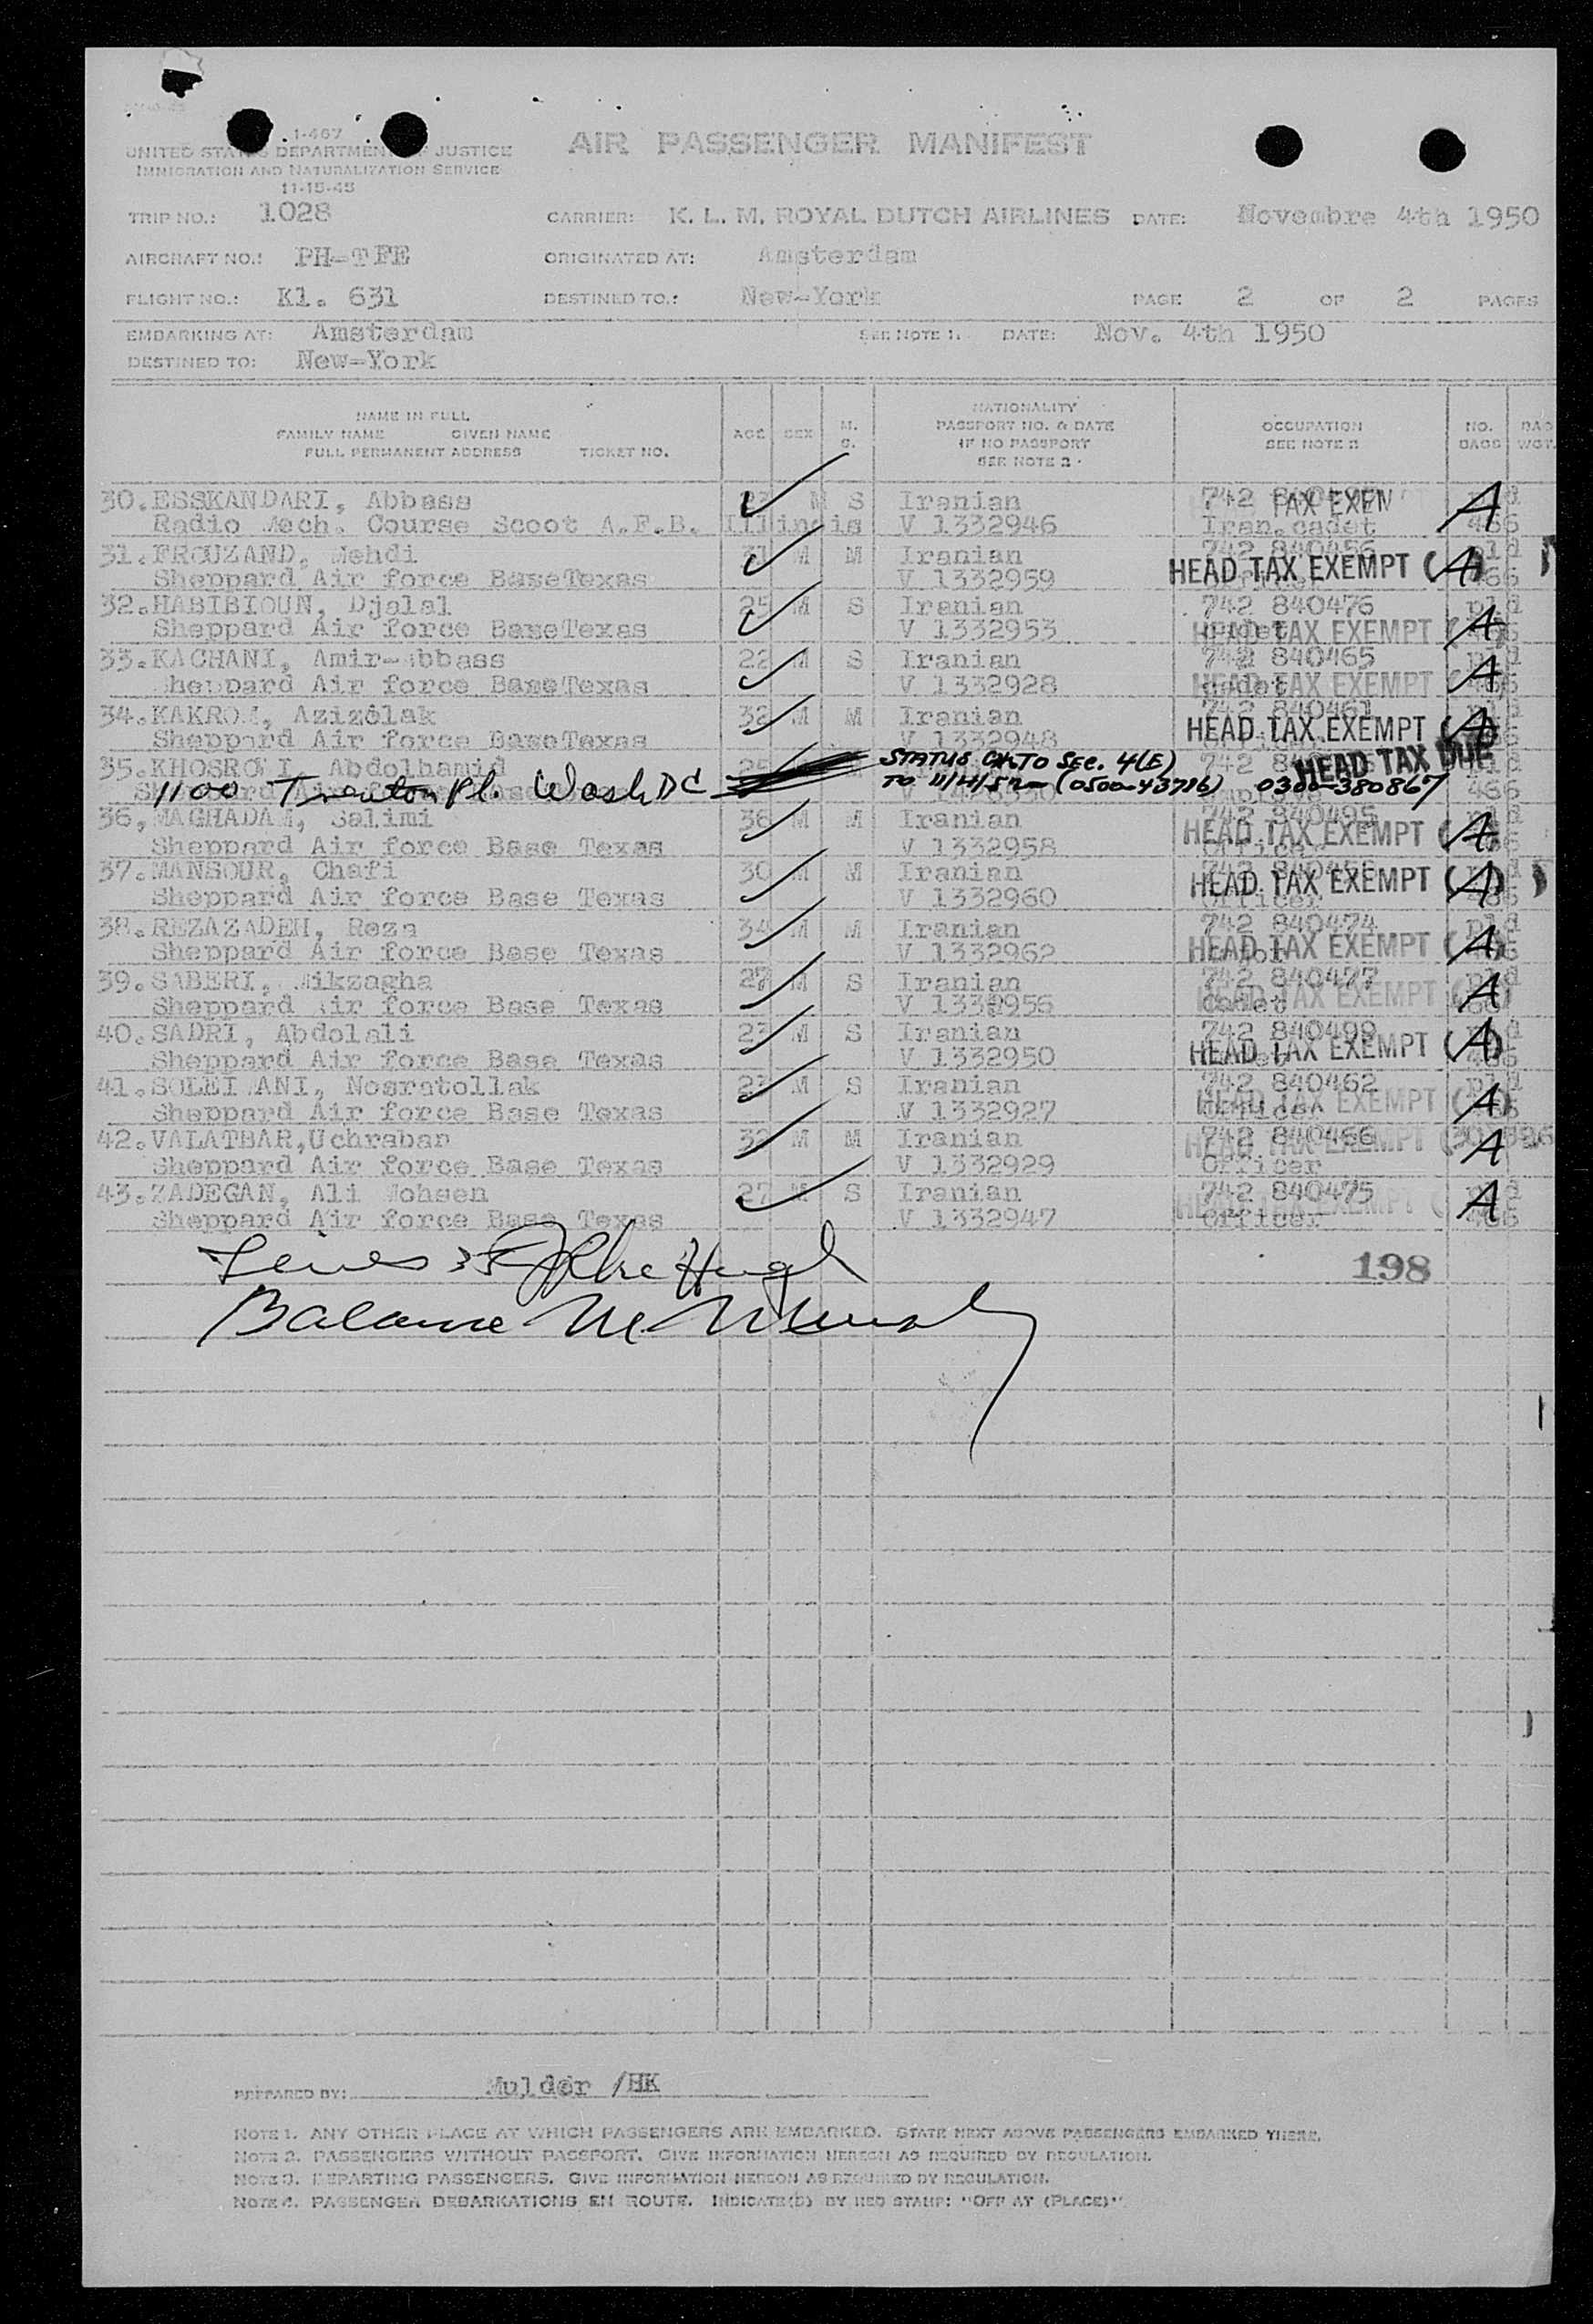 1-467
UNITED STATES DEPARTMENT OF JUSTICE
IMMIGRATION AND NATURALIZATION SERVICE
11-15-45
AIR PASSENGER MANIFEST
TRIP NO.: 1028 CARRIER: K. L. M. ROYAL DUTCH AIRLINES DATE: Novembre 4th 1950
AIRCRAFT NO.: PH-TFE ORIGINATED AT: Amsterdam
FLIGHT NO.: Kl. 631 DESTINED TO.: New-York PAGE 2 OF 2 PAGES
EMBARKING AT: Amsterdam SEE NOTE 1. DATE: Nov. 4th 1950
DESTINED TO: New-York
NAME IN FULL
FAMILY NAME GIVEN NAME
FULL PERMANENT ADDRESS TICKET NO.
AGE SEX M. S.
NATIONALITY
PASSPORT NO. & DATE
IF NO PASSPORT
SEE NOTE 2.
OCCUPATION
SEE NOTE
NO. BAGS BAG WGT.
30. ESSKANDARI, Abbass M S Iranian 742 TAX EXEM A
Radio Mech. Course Scoot A.F.B. Illinois V 1332946 Iran.cadet 466
31. FROUZAND, Mehdi 31 M M Iranian 742 840456
Sheppard Air force Base Texas V 1332959 HEAD TAX EXEMPT A
32. HABIBIOUN, Djalal 25 M S Iranian 742 840476
Sheppard Air force Base Texas V 1332953 HEAD TAX EXEMPT A
33. KACHANI, Amir-Abbass 22 M S Iranian 742 840465
Sheppard Air force Base Texas V 1332928 cadet HEAD TAX EXEMPT A
34. KAKROM, Azizolak 32 M M Iranian 742 840461
Sheppard Air force Base Texas V 1332948 HEAD TAX EXEMPT A
35. KHOSROVI, Abdolhamid 25 STATUS CH. TO SEC. 4(E) 742 HEAD TAX DUE
1100 Trenton Pl. Wash DC TO (0500-43716) 0300-380867 466
36, MAGHADAM, Salimi 36 M M Iranian 742 840495
Sheppard Air force Base Texas V 1332958 Officer HEAD TAX EXEMPT A
37. MANSOUR, Chafi 30 M M Iranian 742
Sheppard Air force Base Texas V 1332960 Officer HEAD TAX EXEMPT A
38. REZAZADEH, Reza 34 M M Iranian 742 840474
Sheppard Air force Base Texas V 1332962 HEAD TAX EXEMPT A
39. SABERI, Mikzagha 27 M S Iranian 742 840477
Sheppard Air force Base Texas V 1332956 Cadet HEAD TAX EXEMPT A
40. SADRI, Abdolali 23 M S Iranian 742 840499
Sheppard Air force Base Texas V 1332950 HEAD TAX EXEMPT A
41. SOLEI ANI, Nosratollak 23 M S Iranian 742 840462
Sheppard Air force Base Texas V 1332927 Officer HEAD TAX EXEMPT A
42. VALATBAR, Uchraban 32 M M Iranian 742 840466
Sheppard Air force Base Texas V 1332929 Officer HEAD TAX EXEMPT A
43. ZADEGAN, Ali Mohsen 27 M S Iranian 742 840475
Sheppard Air force Base Texas V 1332947 Officer HEAD TAX EXEMPT A
198
Balance
PREPARED BY: Mulder /HK
NOTE 1. ANY OTHER PLACE AT WHICH PASSENGERS ARE EMBARKED. STATE NEXT ABOVE PASSENGERS EMBARKED THERE.
NOTE 2. PASSENGERS WITHOUT PASSPORT. GIVE INFORMATION HEREON AS REQUIRED BY REGULATION.
NOTE 3. DEPARTING PASSENGERS. GIVE INFORMATION HEREON AS REQUIRED BY REGULATION.
NOTE 4. PASSENGER DEBARKATIONS EN ROUTE. INDICATE(D) BY RED STAMP: "OFF AT (PLACE)".